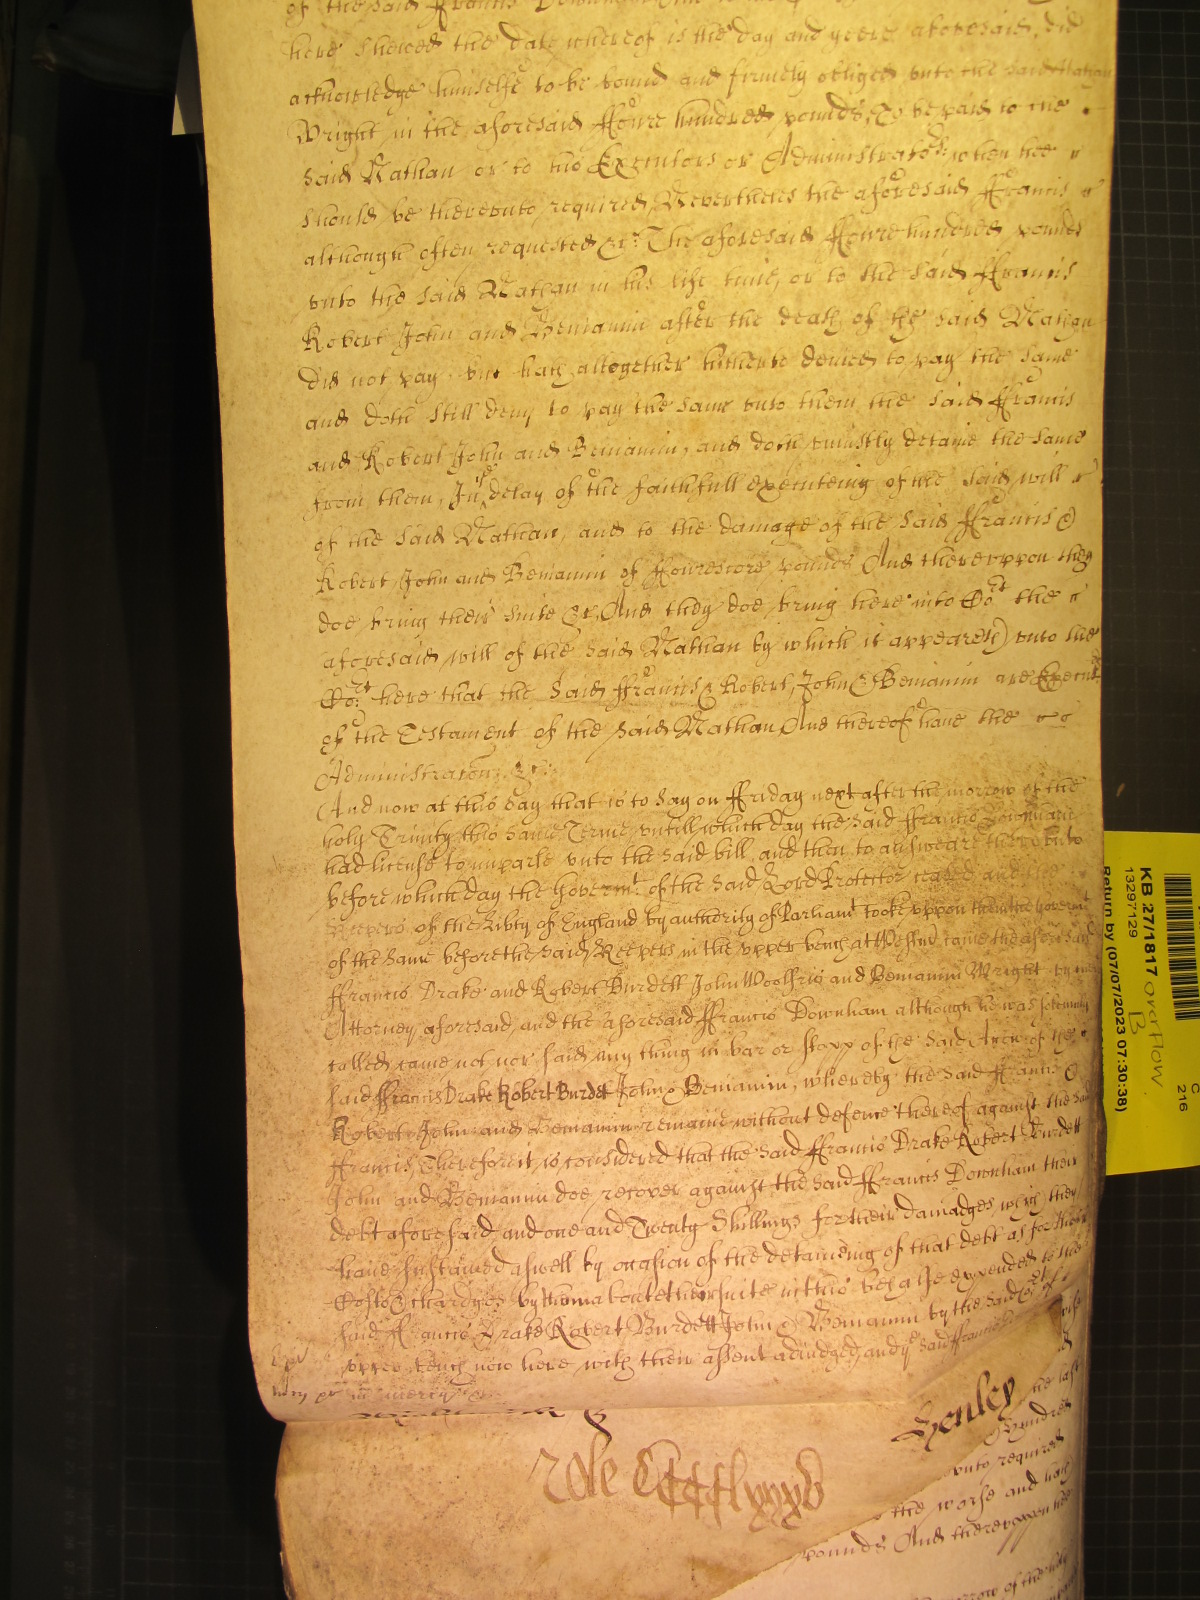 of the said Francis Downham
here shewed the date whereof is the day and yeere aforesaid, did
acknowledge himselfe to be bound and firmely obliged unto the said Nathan
Wright in the aforesaid ffoure hundred pounds, To be paid to the
said Nathan or to his Executors or Administrators when hee
should be thereunto required, Neverthelesse the aforesaid ffrancis
although often requested &c. The aforesaid ffoure hundred pounds
unto the said Nathan in his life time, or to the said ffrancis
Robert John and Beniamin after the death of the said Nathan
did not pay but hath altogether hitherto denied to pay the same
and doth still deny to pay the same unto them the said ffrancis
and Robert John and Beniamin, and doth uniustly detaine the same
from them, In ye delay of the faithfull executeing of the said will
of the said Nathan, and to the damage of the said ffrancis
Robert John and Beniamin of ffourescore pounds And thereuppon they
doe bring their suite &c, And they doe bring here into Cort the
aforesaid will of the said Nathan by which it appeareth unto the
Cort here that the said ffrancis Robert, John & Beniamin are Execut
of the Testament of the said Nathan And thereof have the
Administracon &c.
And now at this day that is to say on ffriday next after the morrow of the
holy Trinity this same Terme, untill which day the said ffrancis Downham
had license to imparle unto the said bill, and then to answeare thereunto
before which day the Governmt of the said Lord Protector ceased and the
Keepers of the Libty of England by authority of Parliamt tooke uppon them the Governmt
of the same before the said Keepers in the upper bench at Westmr came the aforesaid
ffrancis Drake and Robert Burdett John Woolfris and Beniamin Wright by their
Attorney aforesaid, and the aforesaid ffrancis Downham although he was solemnly
called came not nor said any thing in bar or stopp of the said Accon of the
said ffrancis Drake Robert Burdet John & Beniamin, whereby the said ffrancis
Robert John and Beniamin remaine without defence thereof against the said
ffrancis, Therefore it is considered that the said ffrancis Drake Robert Burdett
John and Beniamin doe recover against the said ffrancis Downham their
debt aforesaid, and one and Twenty Shillings for their damages which they
have sustained aswell by occasion of the detaineing of that debt as for their
Costs & chardges by them about their suite in this behalfe expended to the
said ffrancis Drake Robert Burdett John & Beniamin by the said Cort of
upper bench now here with their assent adiudged, and ye said ffrancis
in mercy &c.
Henley
the last
hundred
unto required
the worse and hath
pounds And thereuppon hee
morrow of the holy
Role CCCClxxxv
KB 27/1817 overflow
B
13297129
Return by (07/07/2023 07:30:38)
C
216